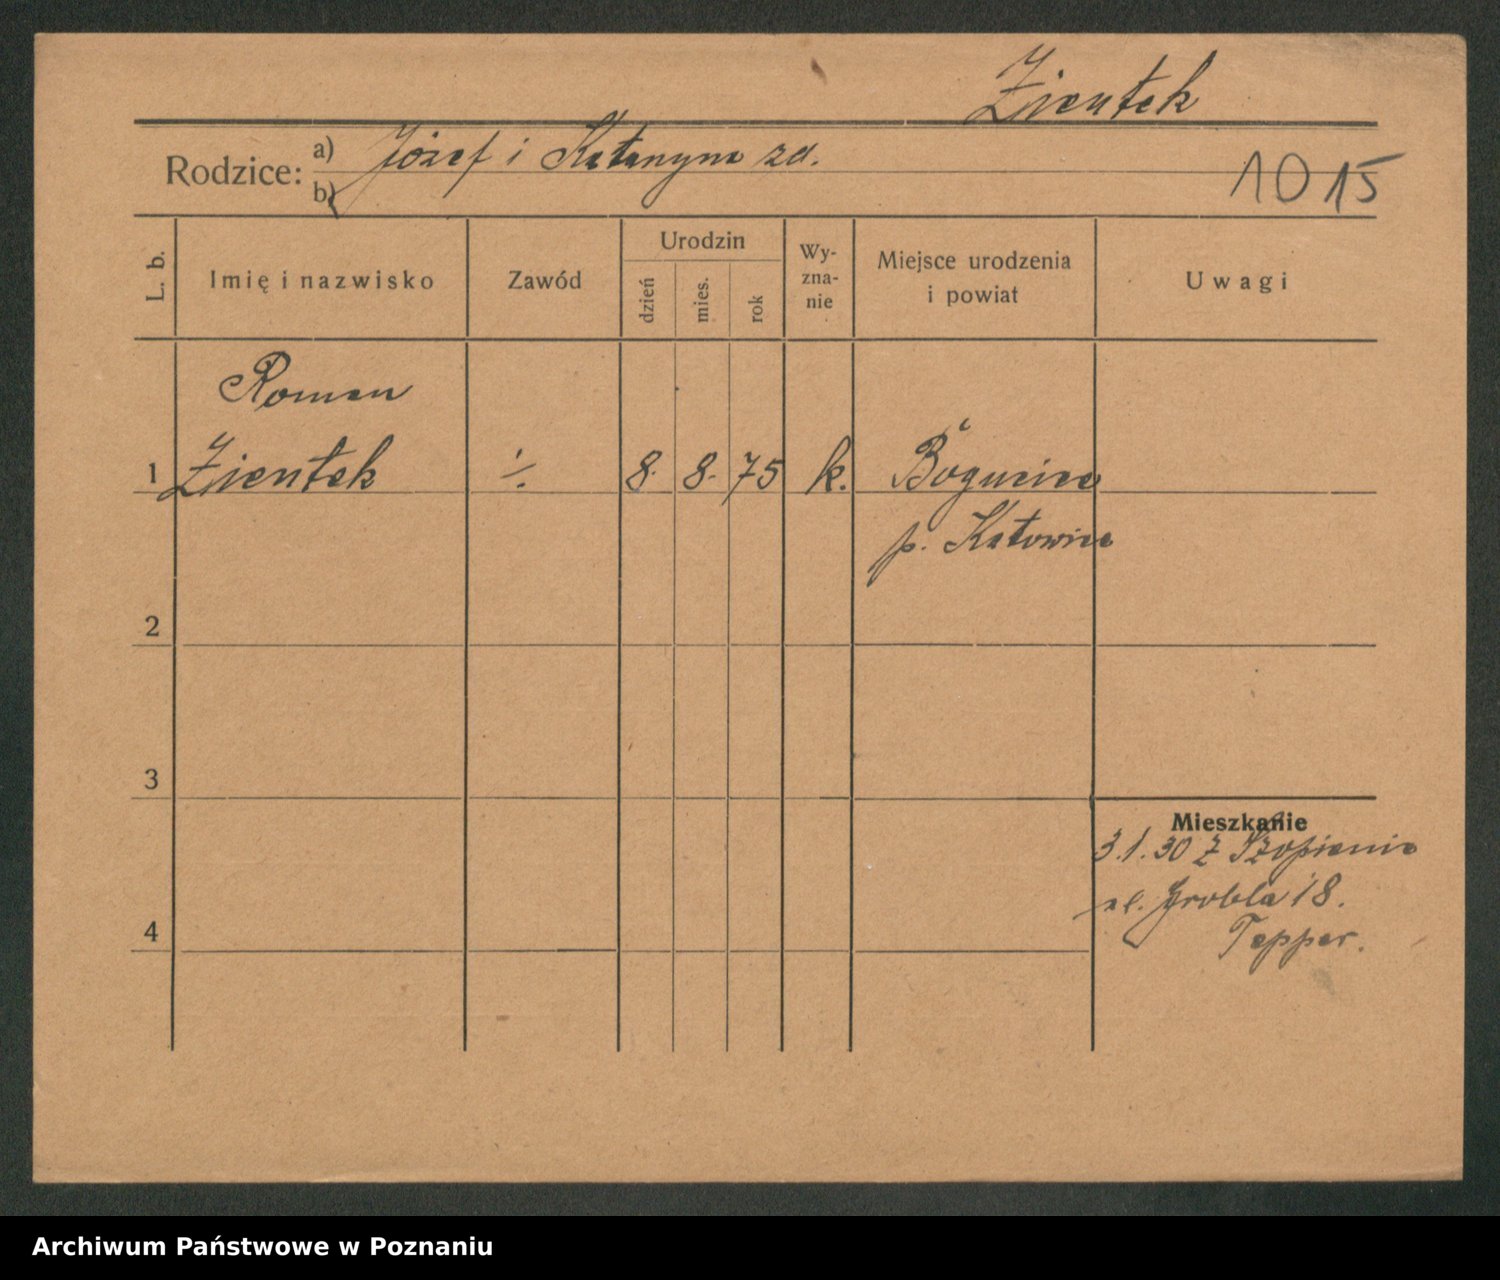 Zientek
Rodzice: a) Józef i Katarzyna zd.
b)
1015
L. b.
Imię i nazwisko
Zawód
Urodzin
dzień
mies.
rok
Wy-
zna-
nie
Miejsce urodzenia
i powiat
Uwagi
Roman
1 Zientek ·/. 8. 8. 75 k. Bogucice
p. Katowice
2
3
Mieszkanie
3.1.30 z Szopienic
ul. Grobla 18.
4
Tepper.
Archiwum Państwowe w Poznaniu